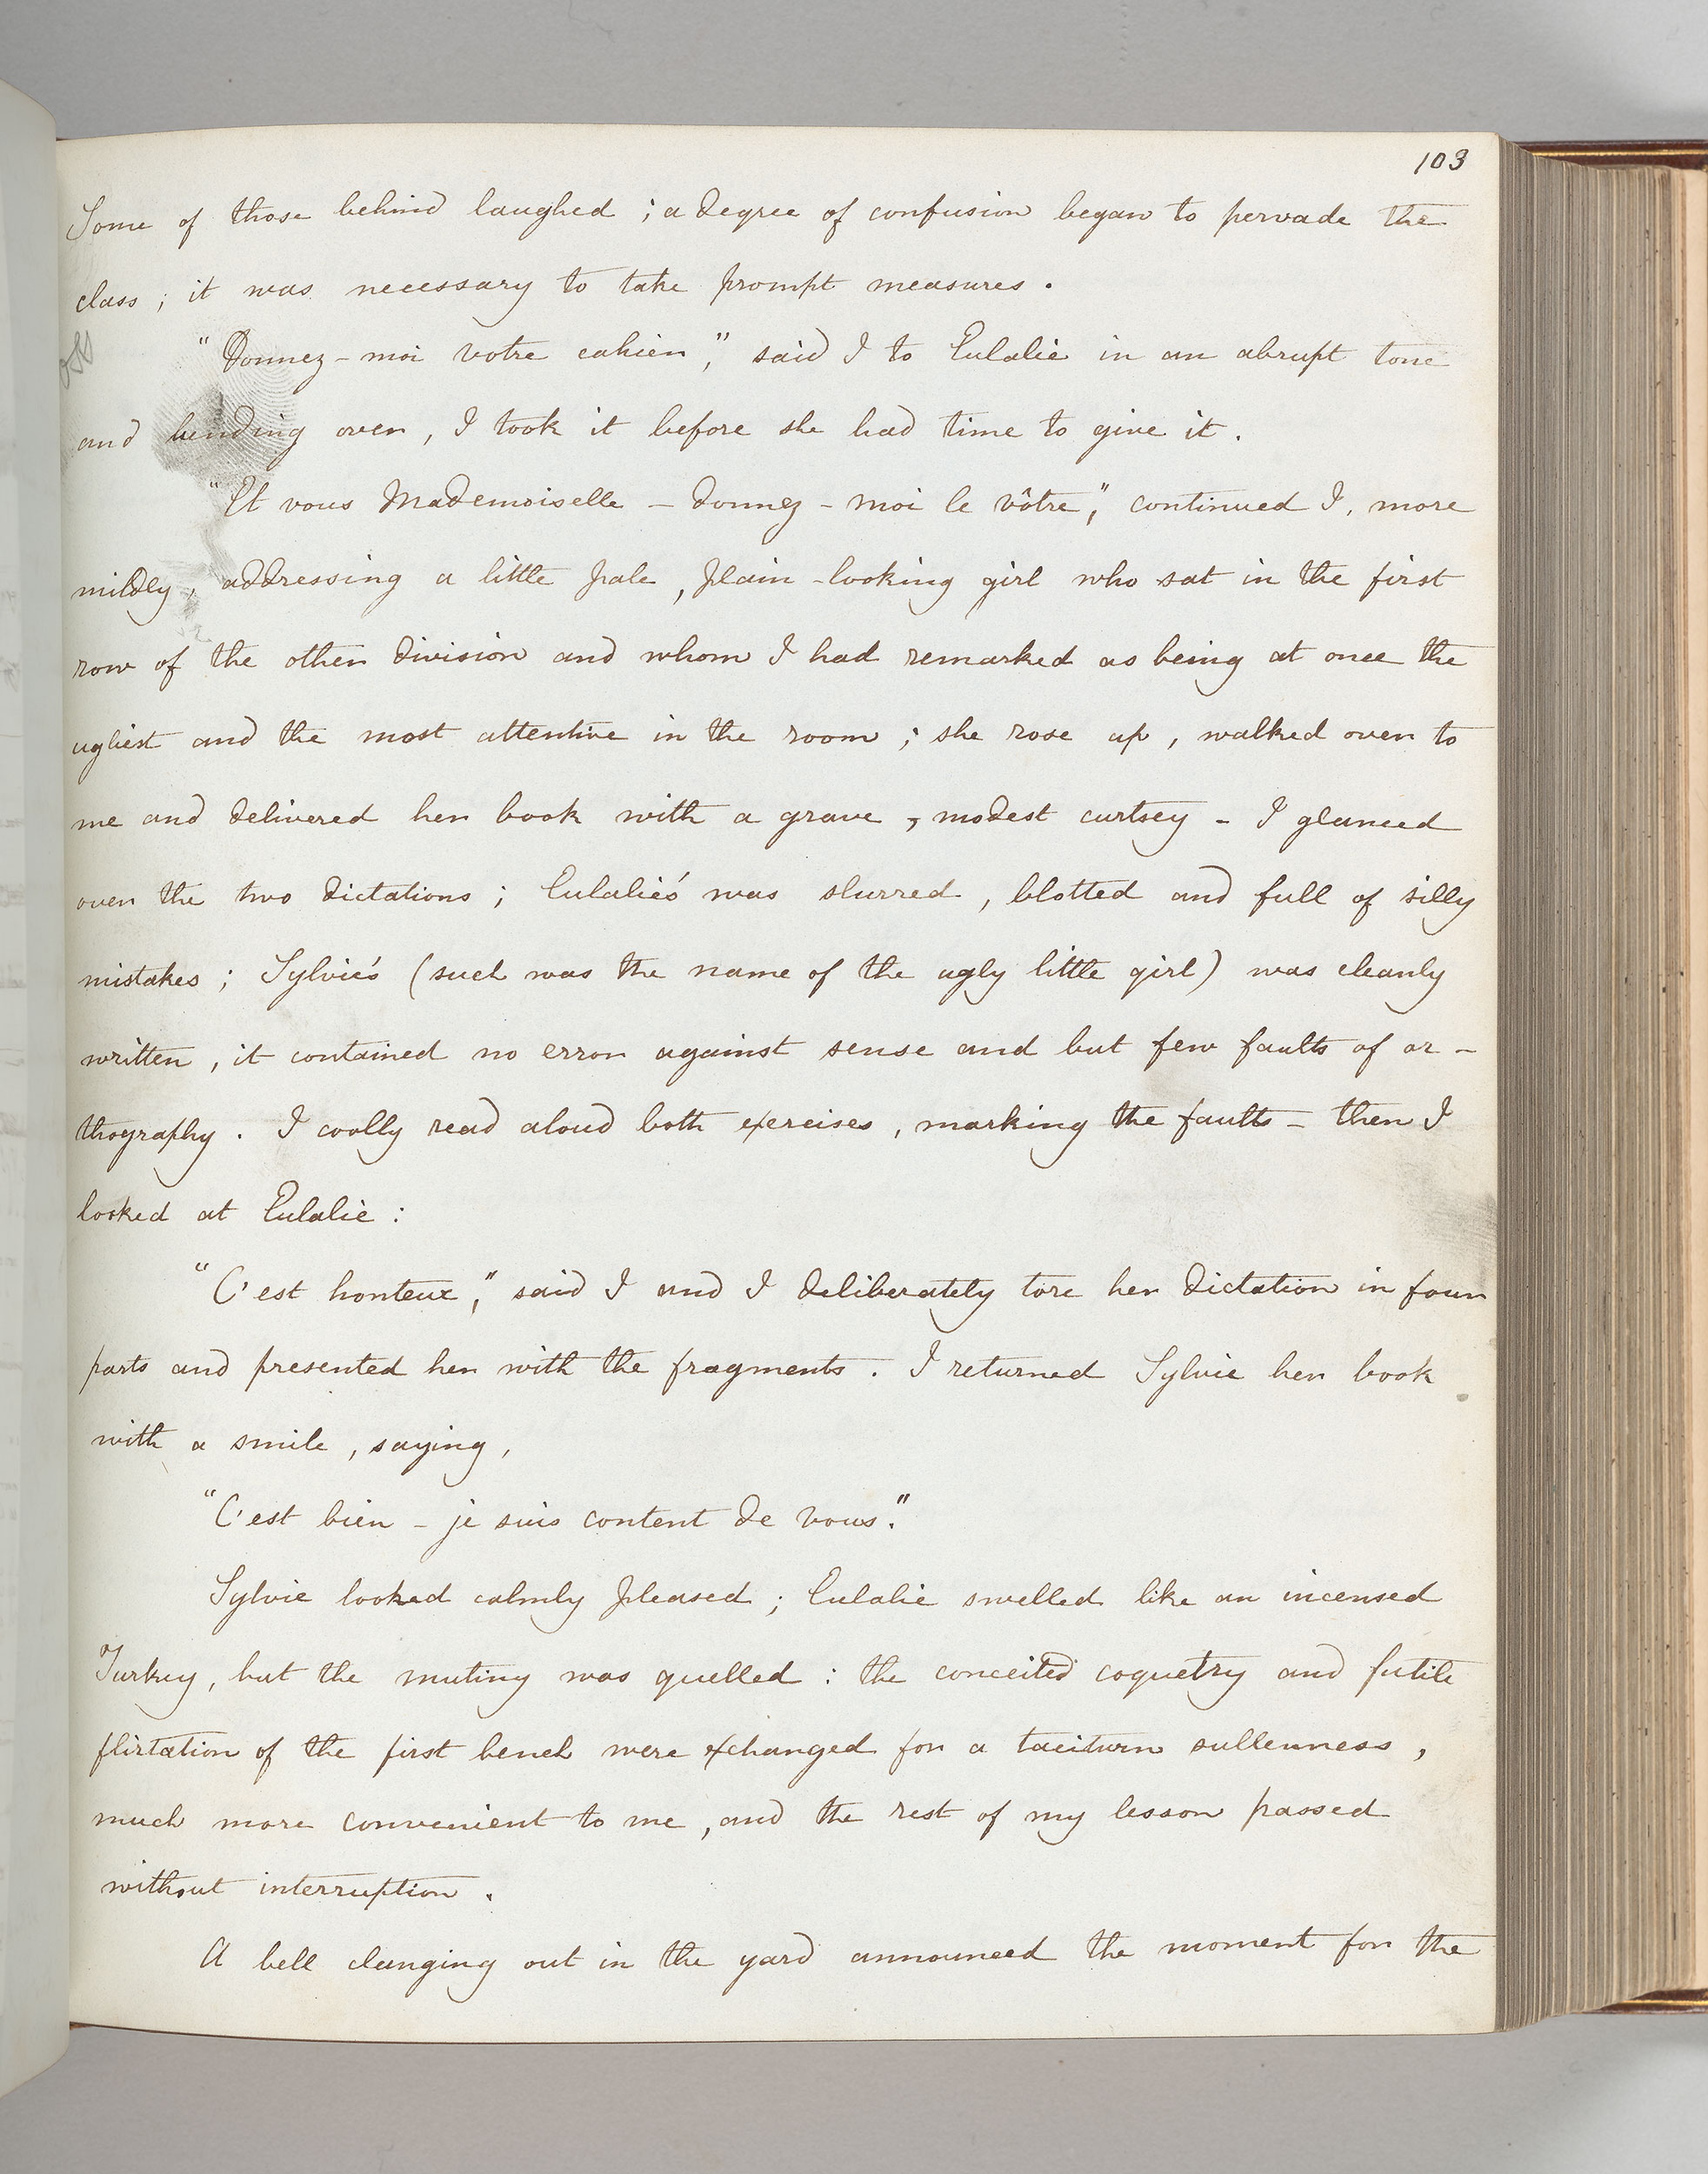 103
Some of those behind laughed ; a degree of confusion began to pervade the
class ; it was necessary to take prompt measures .
"Donnez-moi votre cahier," said I to Eulalie in an abrupt tone
and bending over , I took it before she had time to give it .
"Et vous Mademoiselle – donnez-moi le vôtre," continued I, more
mildly, addressing a little pale , plain-looking girl who sat in the first
row of the other division and whom I had remarked as being at once the
ugliest and the most attentive in the room ; she rose up , walked over to
me and delivered her book with a grave , modest curtsey – I glanced
over the two dictations ; Eulalie's was slurred , blotted and full of silly
mistakes ; Sylvie's (such was the name of the ugly little girl) was cleanly
written , it contained no error against sense and but few faults of or-
thography . I coolly read aloud both exercises , marking the faults – then I
looked at Eulalie :
"C'est honteux," said I and I deliberately tore her dictation in four
parts and presented her with the fragments . I returned Sylvie her book
with a smile , saying ,
"C'est bien – je suis content de vous."
Sylvie looked calmly pleased ; Eulalie swelled like an incensed
Turkey, but the mutiny was quelled : the conceited coquetry and futile
flirtation of the first bench were exchanged for a taciturn sullenness ,
much more convenient to me , and the rest of my lesson passed
without interruption .
A bell clanging out in the yard announced the moment for the